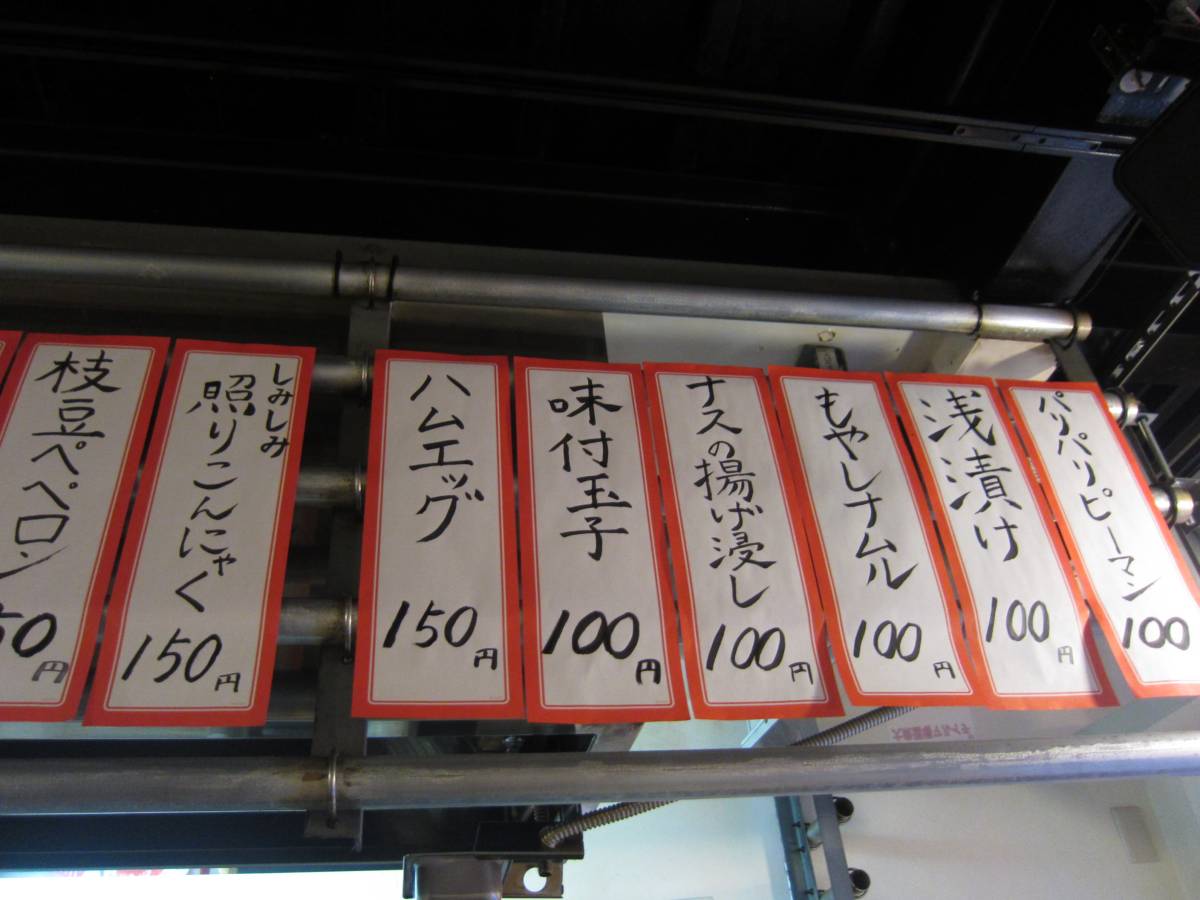 パリパリピーマン
100
浅漬け
100円
もやしナムル
100円
ナスの揚げ浸し
100円
味付玉子
100円
ハムエッグ
150円
しみしみ
照りこんにゃく
150円
枝豆ペペロン
50円